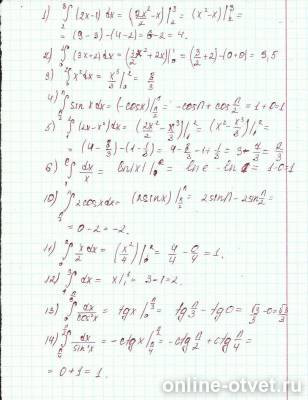 1) ∫₂³ (2x-1)dx = (2x²/2 - x)|₂³ = (x²-x)|₂³ =
= (9-3)-(4-2) = 6-2 = 4.
2) ∫₀¹ (3x+2)dx = (3/2 x² + 2x)|₀¹ = (3/2+2)-(0+0) = 3,5
3) ∫₀² x²dx = x³/3 |₀² = 8/3
4) ∫ sin x dx = (-cos x)| = -cosπ + cos π/2 = 1+0=1
5) ∫₁² (2x-x²)dx = (2x²/2 - x³/3)|₁² = (x² - x³/3)|₁² =
= (4-8/3)-(1-1/3) = 4-8/3-1+1/3 = 3-7/3 = 2/3
6) ∫ dx/x = ln|x| | = ln e - ln 1 = 1-0=1
10) ∫ 2cosx dx = (2sinx)| = 2sinπ - 2sin π/2 =
= 0-2 = -2.
11) ∫₀² x/2 dx = (x²/4)|₀² = 4/4 - 0/4 = 1.
12) ∫₁³ dx = x|₁³ = 3-1=2.
13) ∫ dx/cos²x = tgx| = tg π/3 - tg0 =
14) ∫ dx/sin²x = -ctgx| = -ctg π/2 + ctg π/4 =
= 0+1 = 1.
online-otvet.ru